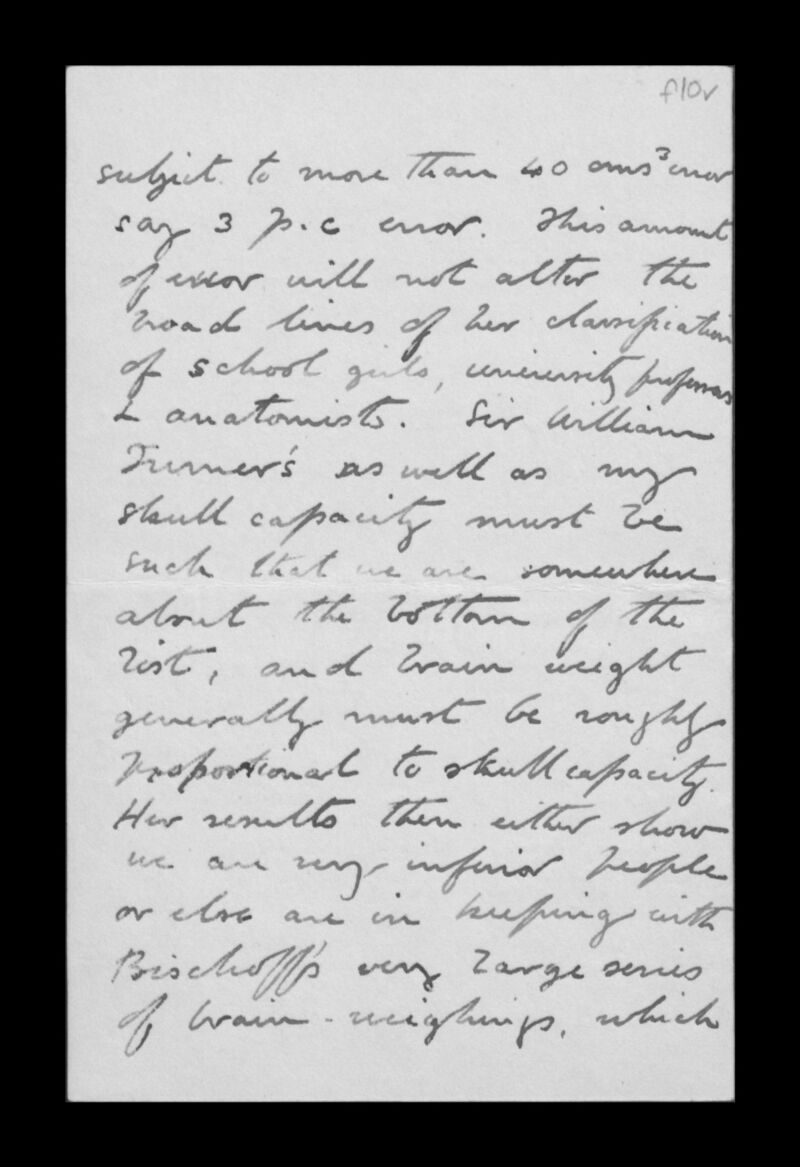 f10v
subject to more than 40 cms³ error
say 3 p.c error. This amount
of error will not alter the
broad lines of her classification
of school girls, university professors
& anatomists. Sir William
Turner's as well as my
skull capacity must be
such that we are somewhere
about the bottom of the
list, and brain weight
generally must be roughly
proportional to skull capacity.
Her results then either show
we are very inferior people
or else are in keeping with
Bischoff's very large series
of brain-weighings, which